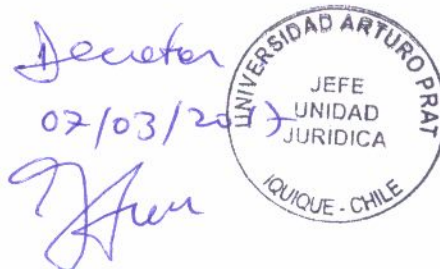 Decretar
07/03/2017
UNIVERSIDAD ARTURO PRAT
JEFE
UNIDAD
JURIDICA
IQUIQUE - CHILE